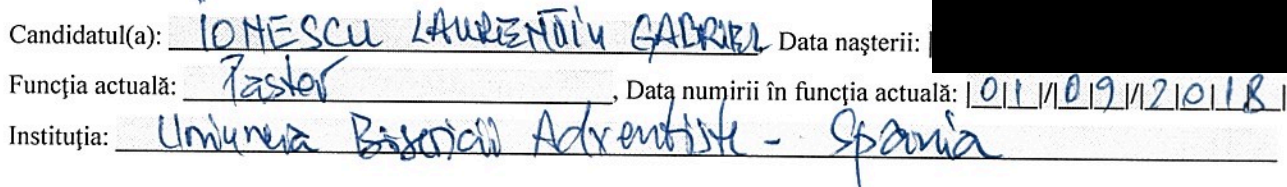 Candidatul(a): IONESCU LAURENȚIU GABRIEL Data naşterii: |
Funcţia actuală: Pastor, Data numirii în funcţia actuală: |0|1|/|0|9|/|2|0|1|8|
Instituţia: Uniunea Bisericii Adventiste - Spania